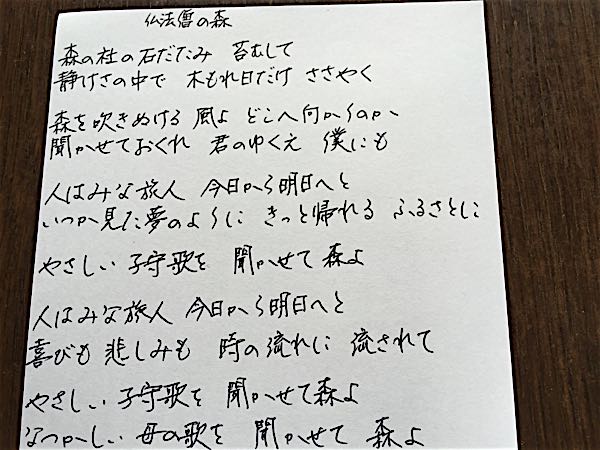 仏法僧の森
森の社の石だたみ 苔むして
静けさの中で 木もれ日だけ ささやく
森を吹きぬける 風よ どこへ向かうのか
聞かせておくれ 君のゆくえ 僕にも
人はみな旅人 今日から明日へと
いつか見た夢のように きっと帰れる ふるさとに
やさしい 子守歌を 聞かせて 森よ
人はみな旅人 今日から明日へと
喜びも 悲しみも 時の流れに 流されて
やさしい 子守歌を 聞かせて森よ
なつかしい 母の歌を 聞かせて 森よ